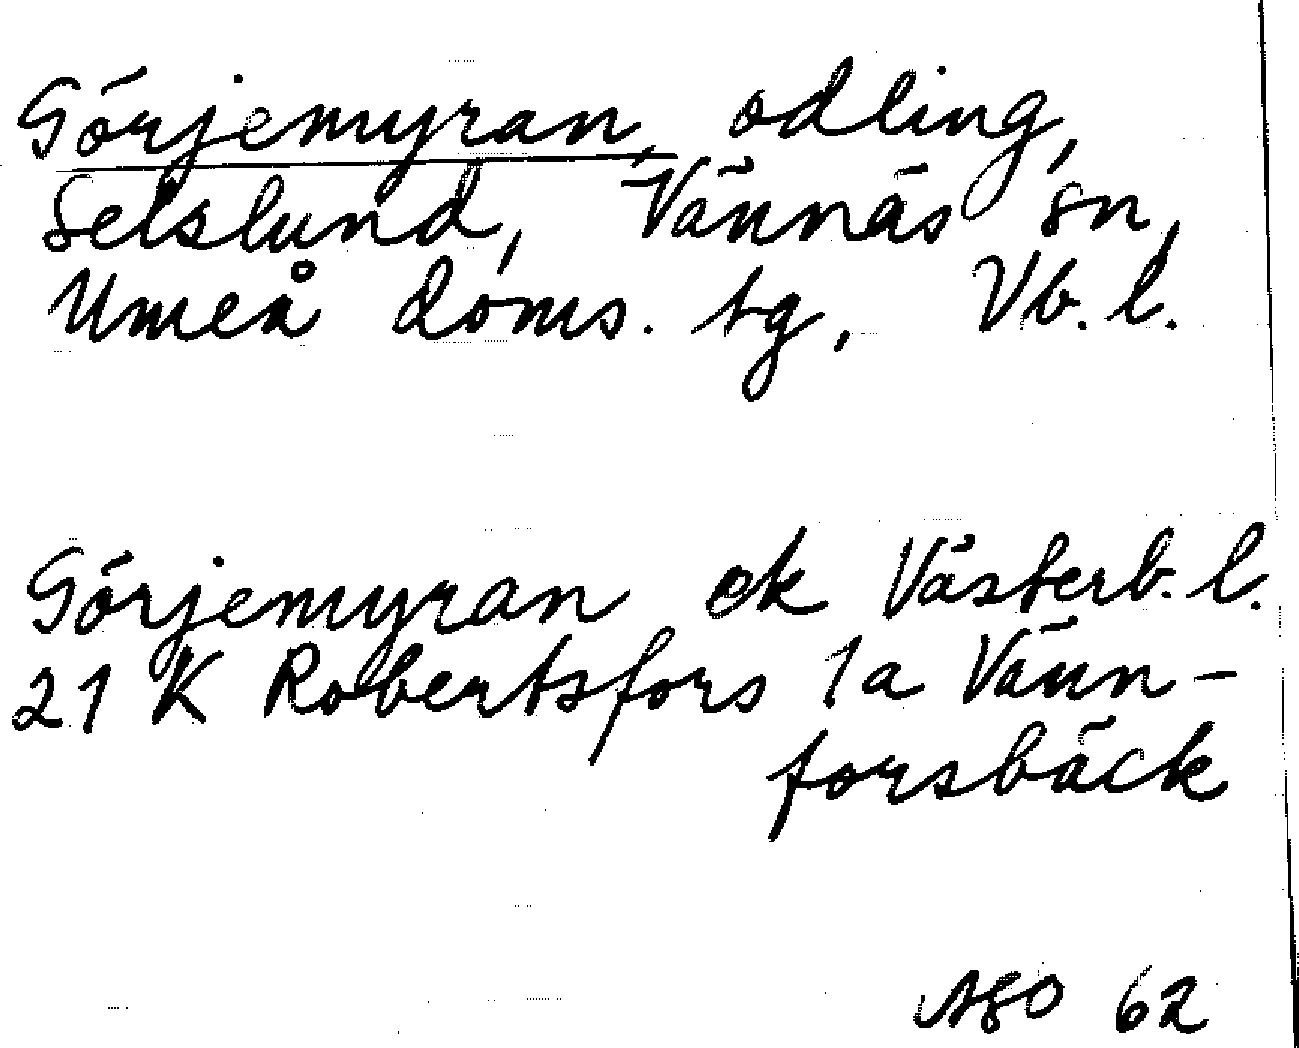 Görjemyran, odling,
Selslund, Vännäs sn,
Umeå doms. tg, Vb. l.
Görjemyran ek Västerb. l.
21 K Robertsfors 1a Vänn-
forsbäck
ASO 62